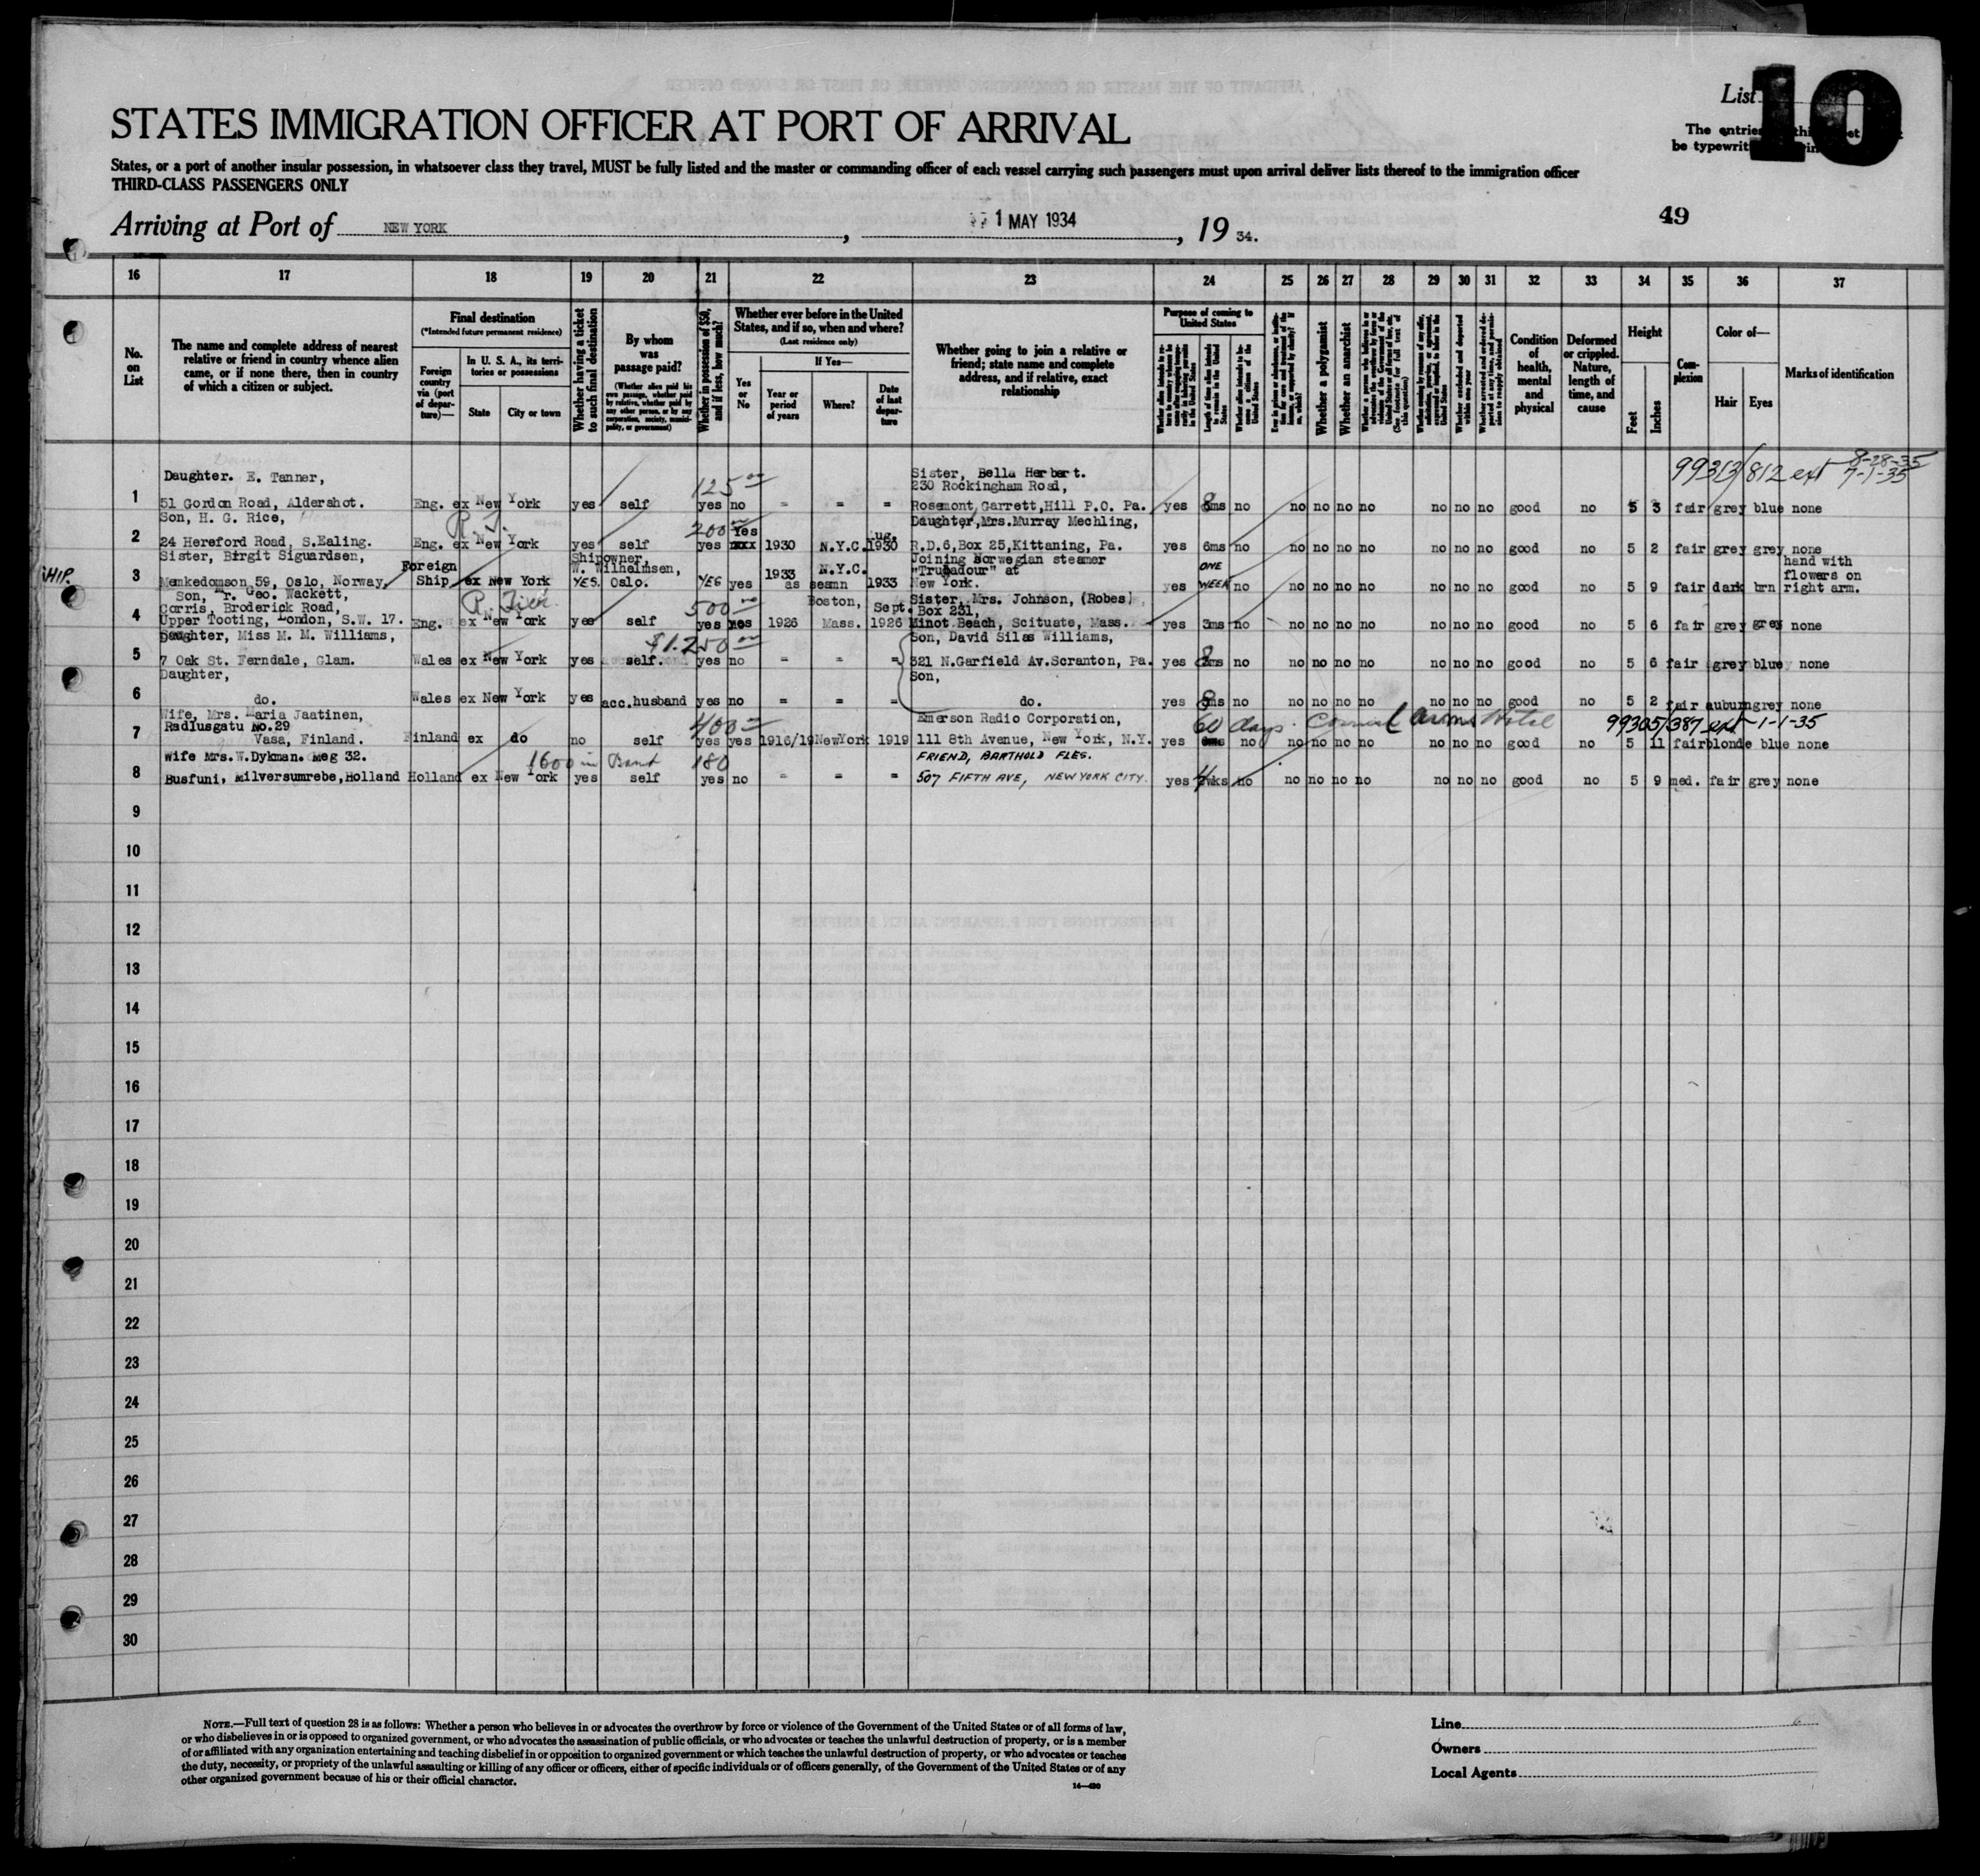 List 10
The entries
be typewrit
STATES IMMIGRATION OFFICER AT PORT OF ARRIVAL
States, or a port of another insular possession, in whatsoever class they travel, MUST be fully listed and the master or commanding officer of each vessel carrying such passengers must upon arrival deliver lists thereof to the immigration officer
THIRD-CLASS PASSENGERS ONLY
Arriving at Port of NEW YORK, 1 MAY 1934, 19 34.
49
16 17 18 19 20 21 22 23 24 25 26 27 28 29 30 31 32 33 34 35 36 37
No. on List
The name and complete address of nearest relative or friend in country whence alien came, or if none there, then in country of which a citizen or subject.
Final destination
(*Intended future permanent residence)
Foreign country via (port of departure)—
In U. S. A., its territories or possessions
State
City or town
Whether having a ticket to such final destination
By whom was passage paid?
(Whether alien paid his own passage, whether paid by relative, whether paid by any other person, or by any corporation, society, municipality, or government)
Whether in possession of $50, and if less, how much?
Whether ever before in the United States, and if so, when and where?
(Last residence only)
Yes or No
If Yes—
Year or period of years
Where?
Date of last departure
Whether going to join a relative or friend; state name and complete address, and if relative, exact relationship
Purpose of coming to United States
Length of time alien intends to remain in the United States
Whether a polygamist
Whether an anarchist
Condition of health, mental and physical
Deformed or crippled. Nature, length of time, and cause
Height
Feet
Inches
Complexion
Color of—
Hair
Eyes
Marks of identification
99313/812 ext 8-28-35
7-1-35
Daughter. E. Tanner, 125 00 Sister, Bella Herbert.
230 Rockingham Road,
1 51 Gordon Road, Aldershot. Eng. ex New York yes self yes no = = = Rosemont, Garrett, Hill P.O. Pa. yes 8ms no no no no no no no no good no 5 3 fair grey blue none
Son, H. G. Rice, 200 Yes Aug. Daughter, Mrs. Murray Mechling,
2 24 Hereford Road, S.Ealing. Eng. ex New York yes self yes xxx 1930 N.Y.C. 1930 R.D.6, Box 25, Kittaning, Pa. yes 6ms no no no no no no no no good no 5 2 fair grey grey none
SHIP.
Sister, Birgit Siguardsen, Foreign Shipowner, W. Wilhelmsen, 1933 N.Y.C. Joining Norwegian steamer "Trubadour" at ONE hand with flowers on
3 Menkedomson 59, Oslo, Norway Ship ex New York YES. Oslo. YES yes as seamn 1933 New York. yes WEEK no no no no no no no no good no 5 9 fair dark brn right arm.
Son, Mr. Geo. Wackett, 500 00 Boston, Sept. Sister, Mrs. Johnson, (Robes)
Corris, Broderick Road, Box 231,
4 Upper Tooting, London, S.W. 17. Eng. ex New York yes self yes yes 1926 Mass. 1926 Minot Beach, Scituate, Mass. yes 3ms no no no no no no no no good no 5 6 fair grey grey none
Daughter, Miss M. M. Williams, $1.250 00 Son, David Silas Williams,
5 7 Oak St. Ferndale, Glam. Wales ex New York yes self. yes no = = = 321 N.Garfield Av. Scranton, Pa. yes 8ms no no no no no no no no good no 5 6 fair grey blue none
Daughter, Son,
6 do. Wales ex New York yes acc.husband yes no = = = do. yes 8ms no no no no no no no no good no 5 2 fair auburn grey none
Wife, Mrs. Maria Jaatinen, 400 Emerson Radio Corporation, 60 days. Cornish Arms Hotel 99305/387 ext 1-1-35
Radlusgatu No.29
7 Vasa, Finland. Finland ex do no self yes yes 1916/19 New York 1919 111 8th Avenue, New York, N.Y. yes no no no no no no no no good no 5 11 fair blonde blue none
Wife Mrs. W. Dykman. Meg 32. 1600 in Bank 180 FRIEND, BARTHOLD FLES.
8 Busfuni, Milversumrebe, Holland Holland ex New York yes self yes no = = = 507 FIFTH AVE, NEW YORK CITY. yes 4wks no no no no no no no no good no 5 9 med. fair grey none
9
10
11
12
13
14
15
16
17
18
19
20
21
22
23
24
25
26
27
28
29
30
NOTE.—Full text of question 28 is as follows: Whether a person who believes in or advocates the overthrow by force or violence of the Government of the United States or of all forms of law,
or who disbelieves in or is opposed to organized government, or who advocates the assassination of public officials, or who advocates or teaches the unlawful destruction of property, or is a member
of or affiliated with any organization entertaining and teaching disbelief in or opposition to organized government or which teaches the unlawful destruction of property, or who advocates or teaches
the duty, necessity, or propriety of the unlawful assaulting or killing of any officer or officers, either of specific individuals or of officers generally, of the Government of the United States or of any
other organized government because of his or their official character.
14—430
Line
Owners
Local Agents